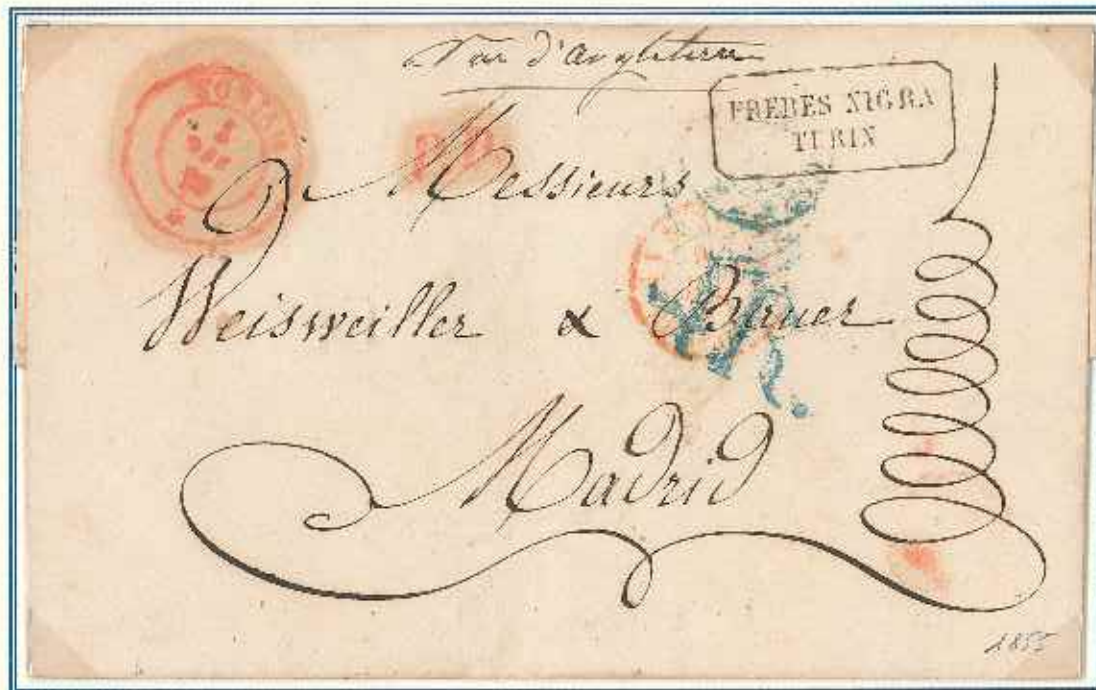 d'angleterre
FRERES NIGRA
TURIN
P.D.
Messieurs
Weisweiller & Bauer
Madrid
1855